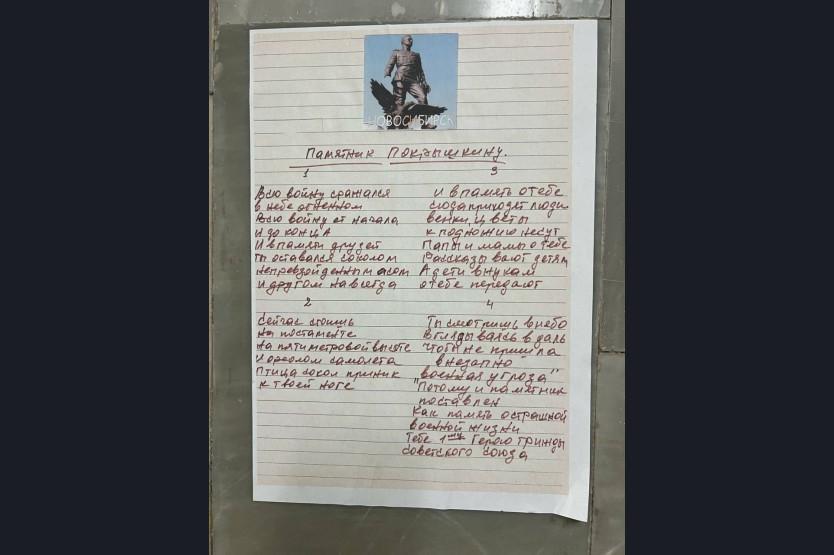 НОВОСИБИРСК
Памятник Покрышкину.
1
Всю войну сражался
в небе огненном
Всю войну от начала
и до конца
И в памяти друзей
ты оставался соколом
непревзойденным асом
и другом навсегда
2
Сейчас стоишь
на постаменте
на пятиметровой высоте
И ореолом самолета
Птица сокол приник
к твоей ноге
3
И в память о тебе
сюда приходят люди
венки, цветы
к подножию несут
Папы и мамы о тебе
Рассказывают детям
А дети внукам
о тебе передают
4
Ты смотришь в небо
Вглядываясь в даль
Чтоб не пришла
внезапно
"военная угроза"
Потому и памятник
поставлен
Как память о страшной
военной жизни
Тебе 1му Герою трижды
советского союза